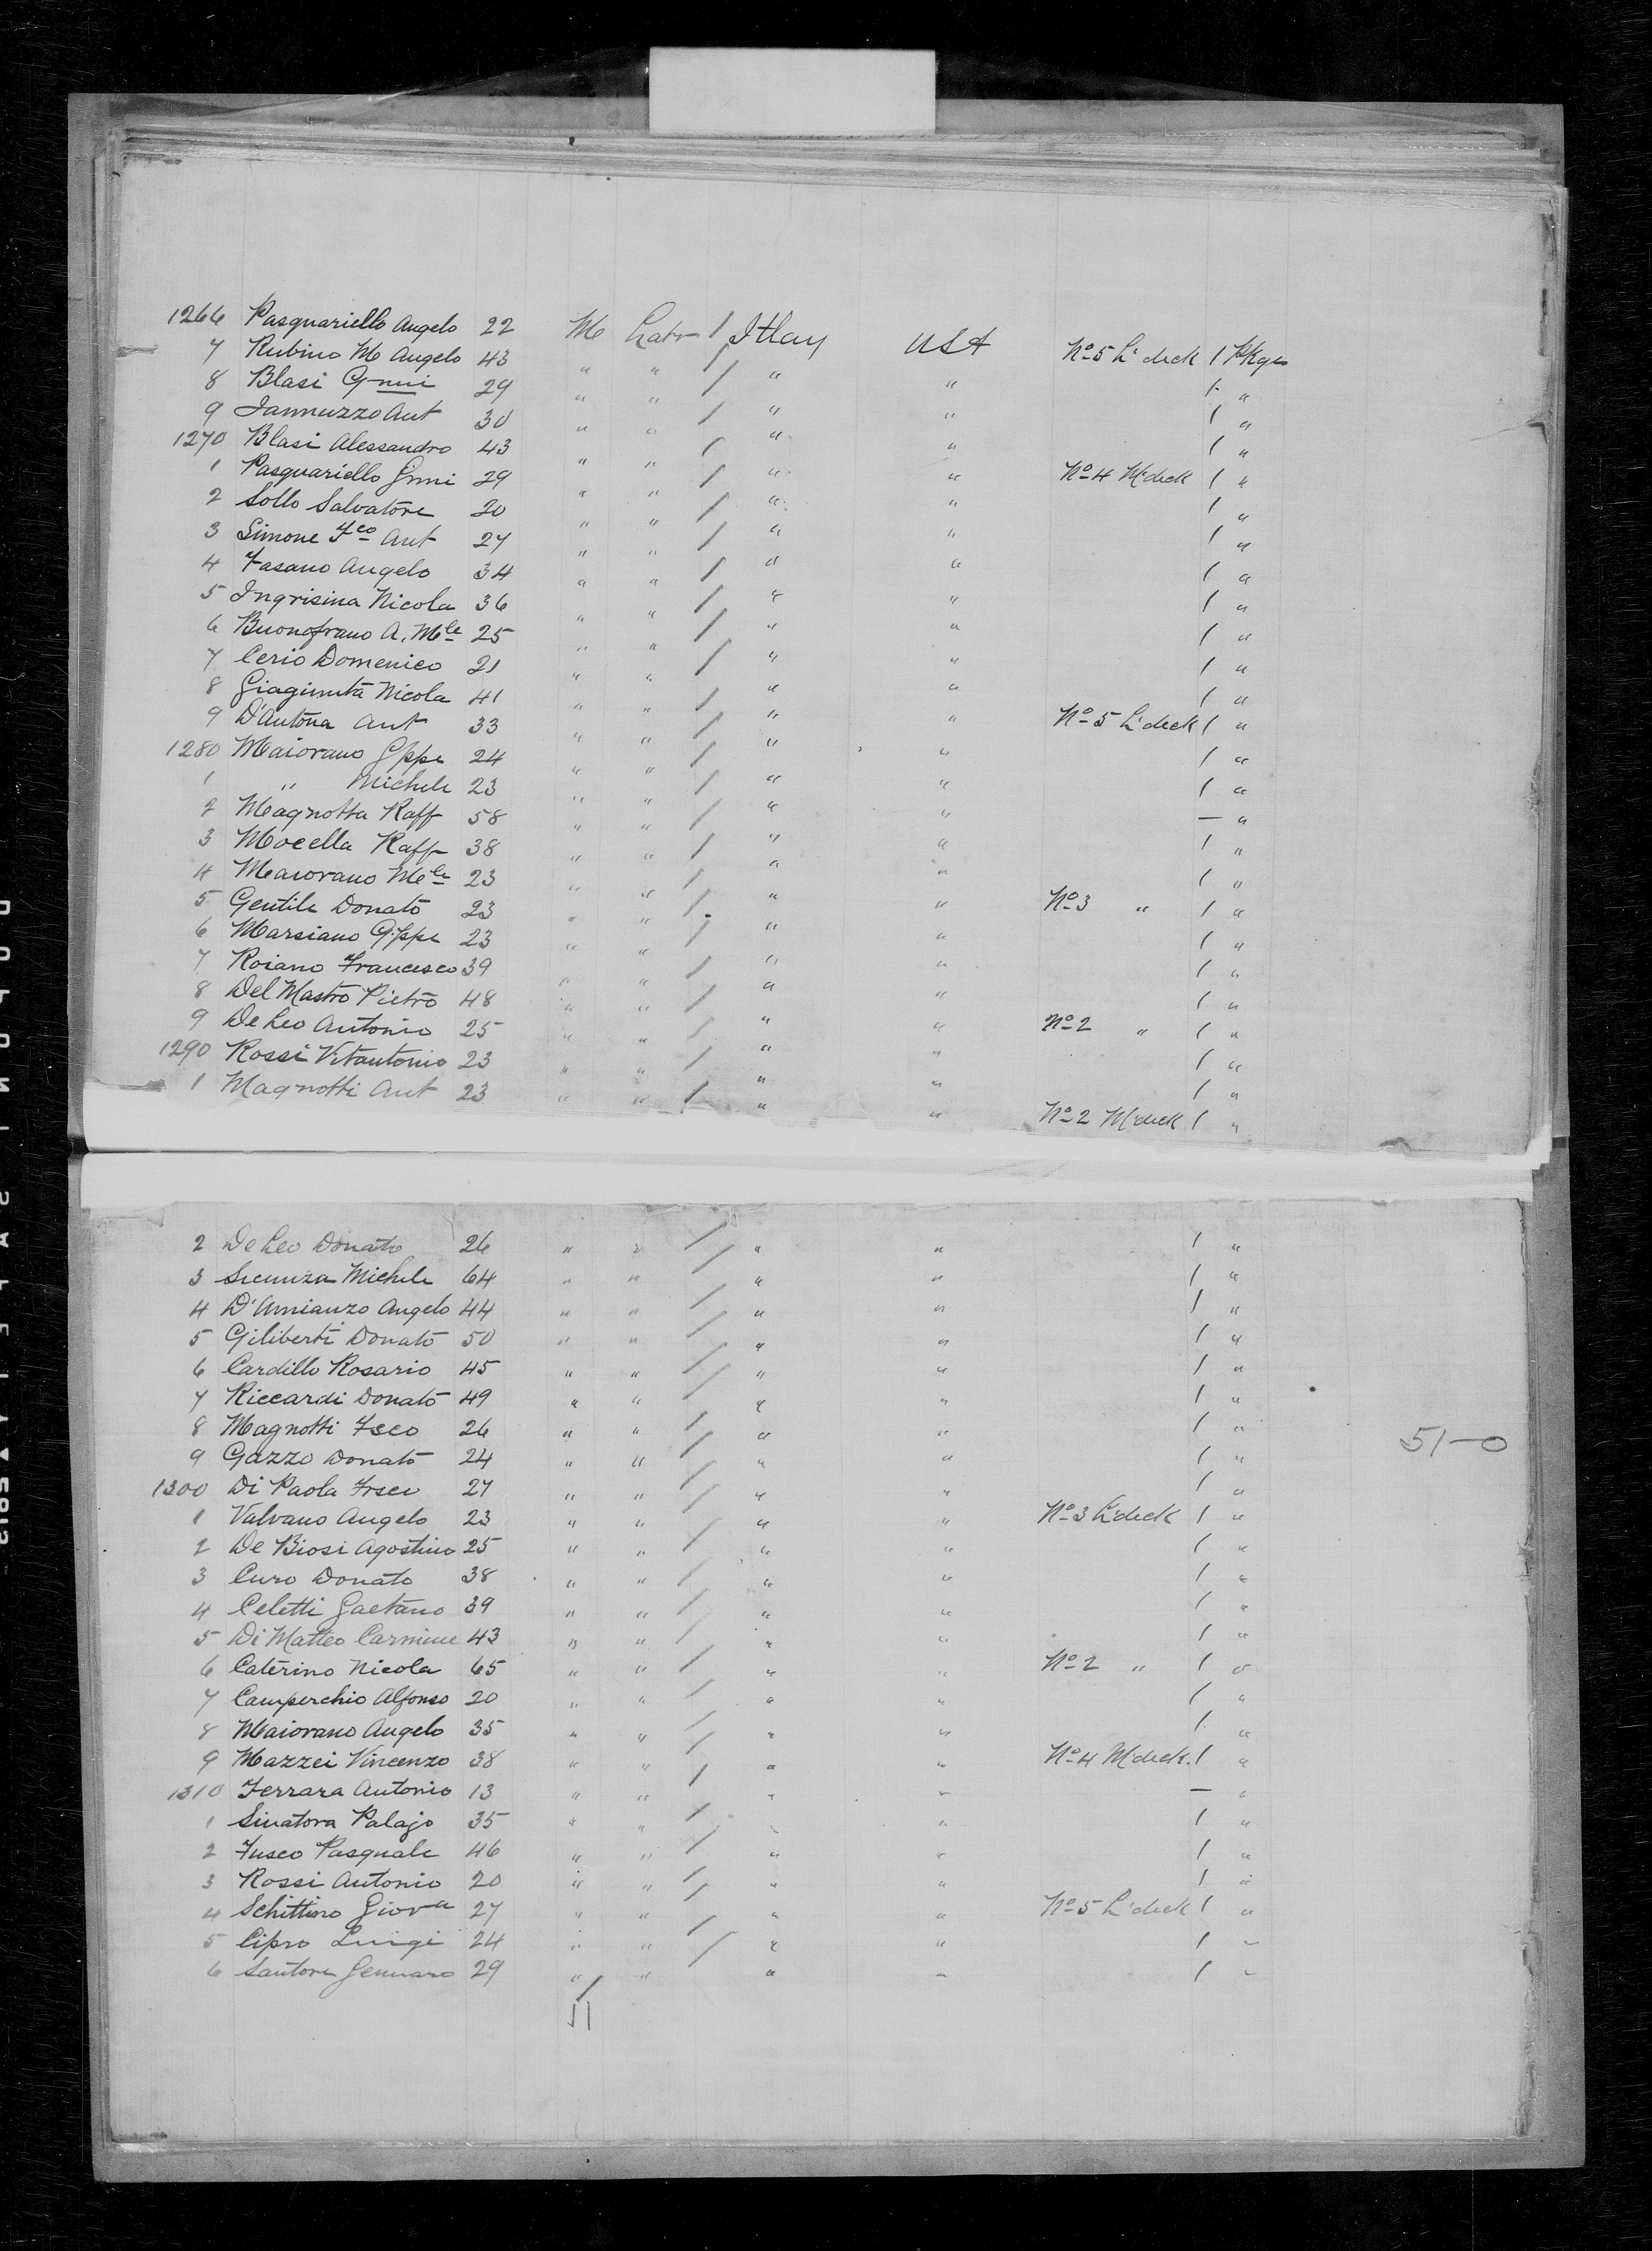 1266 Pasquariello Angelo 22 M Labr / Itlay USA No 5 L' deck 1 Pkge
7 Rubino M Angelo 43 " " / " " 1 "
8 Blasi Gnni 29 " " / " " 1 "
9 Iannuzzo Ant 30 " " / " " 1 "
1270 Blasi Alessandro 43 " " / " " No 4 M'deck 1 "
1 Pasquariello Gnni 29 " " / " " 1 "
2 Sollo Salvatore 20 " " / " " 1 "
3 Simone Fco Ant 27 " " / " " 1 "
4 Fasano Angelo 34 " " / " " 1 "
5 Ingrisina Nicola 36 " " / " " 1 "
6 Buonofrano A. Mle 25 " " / " " 1 "
7 Cerio Domenico 21 " " / " " 1 "
8 Nicola 41 " " / " " No 5 L'deck 1 "
9 D'Antona Ant 33 " " / " " 1 "
1280 Maiorano Gppe 24 " " / " " 1 "
1 " Michele 23 " " / " " — "
2 Magnotta Raff 58 " " / " " 1 "
3 Mocella Raff 38 " " / " " 1 "
4 Maiorano Mle 23 " " / " " No 3 " 1 "
5 Gentile Donato 23 " " / " " 1 "
6 Marsiano Gppe 23 " " / " " 1 "
7 Roiano Francesco 39 " " / " " 1 "
8 Del Mastro Pietro 48 " " / " " No 2 " 1 "
9 De Leo Antonio 25 " " / " " 1 "
1290 Rossi Vitantonio 23 " " / " " 1 "
1 Magnotti Ant 23 " " / " " No 2 M'deck 1 "
2 De Leo Donato 26 " " / " " 1 "
3 Michele 64 " " / " " 1 "
4 D'Amianzo Angelo 44 " " / " " 1 "
5 Giliberti Donato 50 " " / " " 1 "
6 Cardillo Rosario 45 " " / " " 1 "
7 Riccardi Donato 49 " " / " " 1 "
8 Magnotti Fsco 26 " " / " " 1 " 51-0
9 Gazzo Donato 24 " " / " " 1 "
1300 Di Paola Frsco 27 " " / " " 1 "
1 Valvano Angelo 23 " " / " " No 3 L'deck 1 "
2 De Biosi Agostino 25 " " / " " 1 "
3 Curo Donato 38 " " / " " 1 "
4 Celetti Gaetano 39 " " / " " 1 "
5 Di Matteo Carmine 43 " " / " " 1 "
6 Caterino Nicola 65 " " / " " No 2 " 1 "
7 Camperchio Alfonso 20 " " / " " 1 "
8 Maiorano Angelo 35 " " / " " 1 "
9 Mazzei Vincenzo 38 " " / " " No 4 M'deck 1 "
1310 Ferrara Antonio 13 " " / " " — "
1 Sinatora Palajo 35 " " / " " 1 "
2 Fusco Pasquale 46 " " / " " 1 "
3 Rossi Antonio 20 " " / " " 1 "
4 Schittino Giova 27 " " / " " No 5 L'deck 1 "
5 Cipro Luigi 24 " " / " " 1 "
6 Santore Gennaro 29 " " / " " 1 "
51